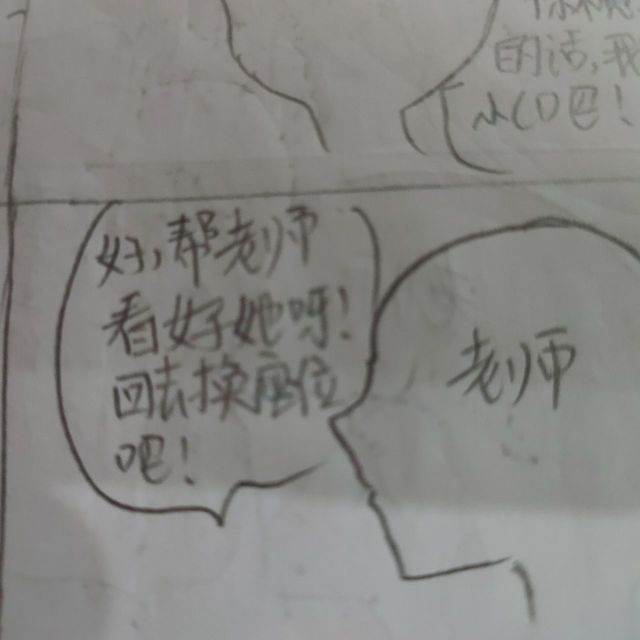 的话,我
心吧!
好,帮老师
看好她呀!
回去换座位
吧!
老师